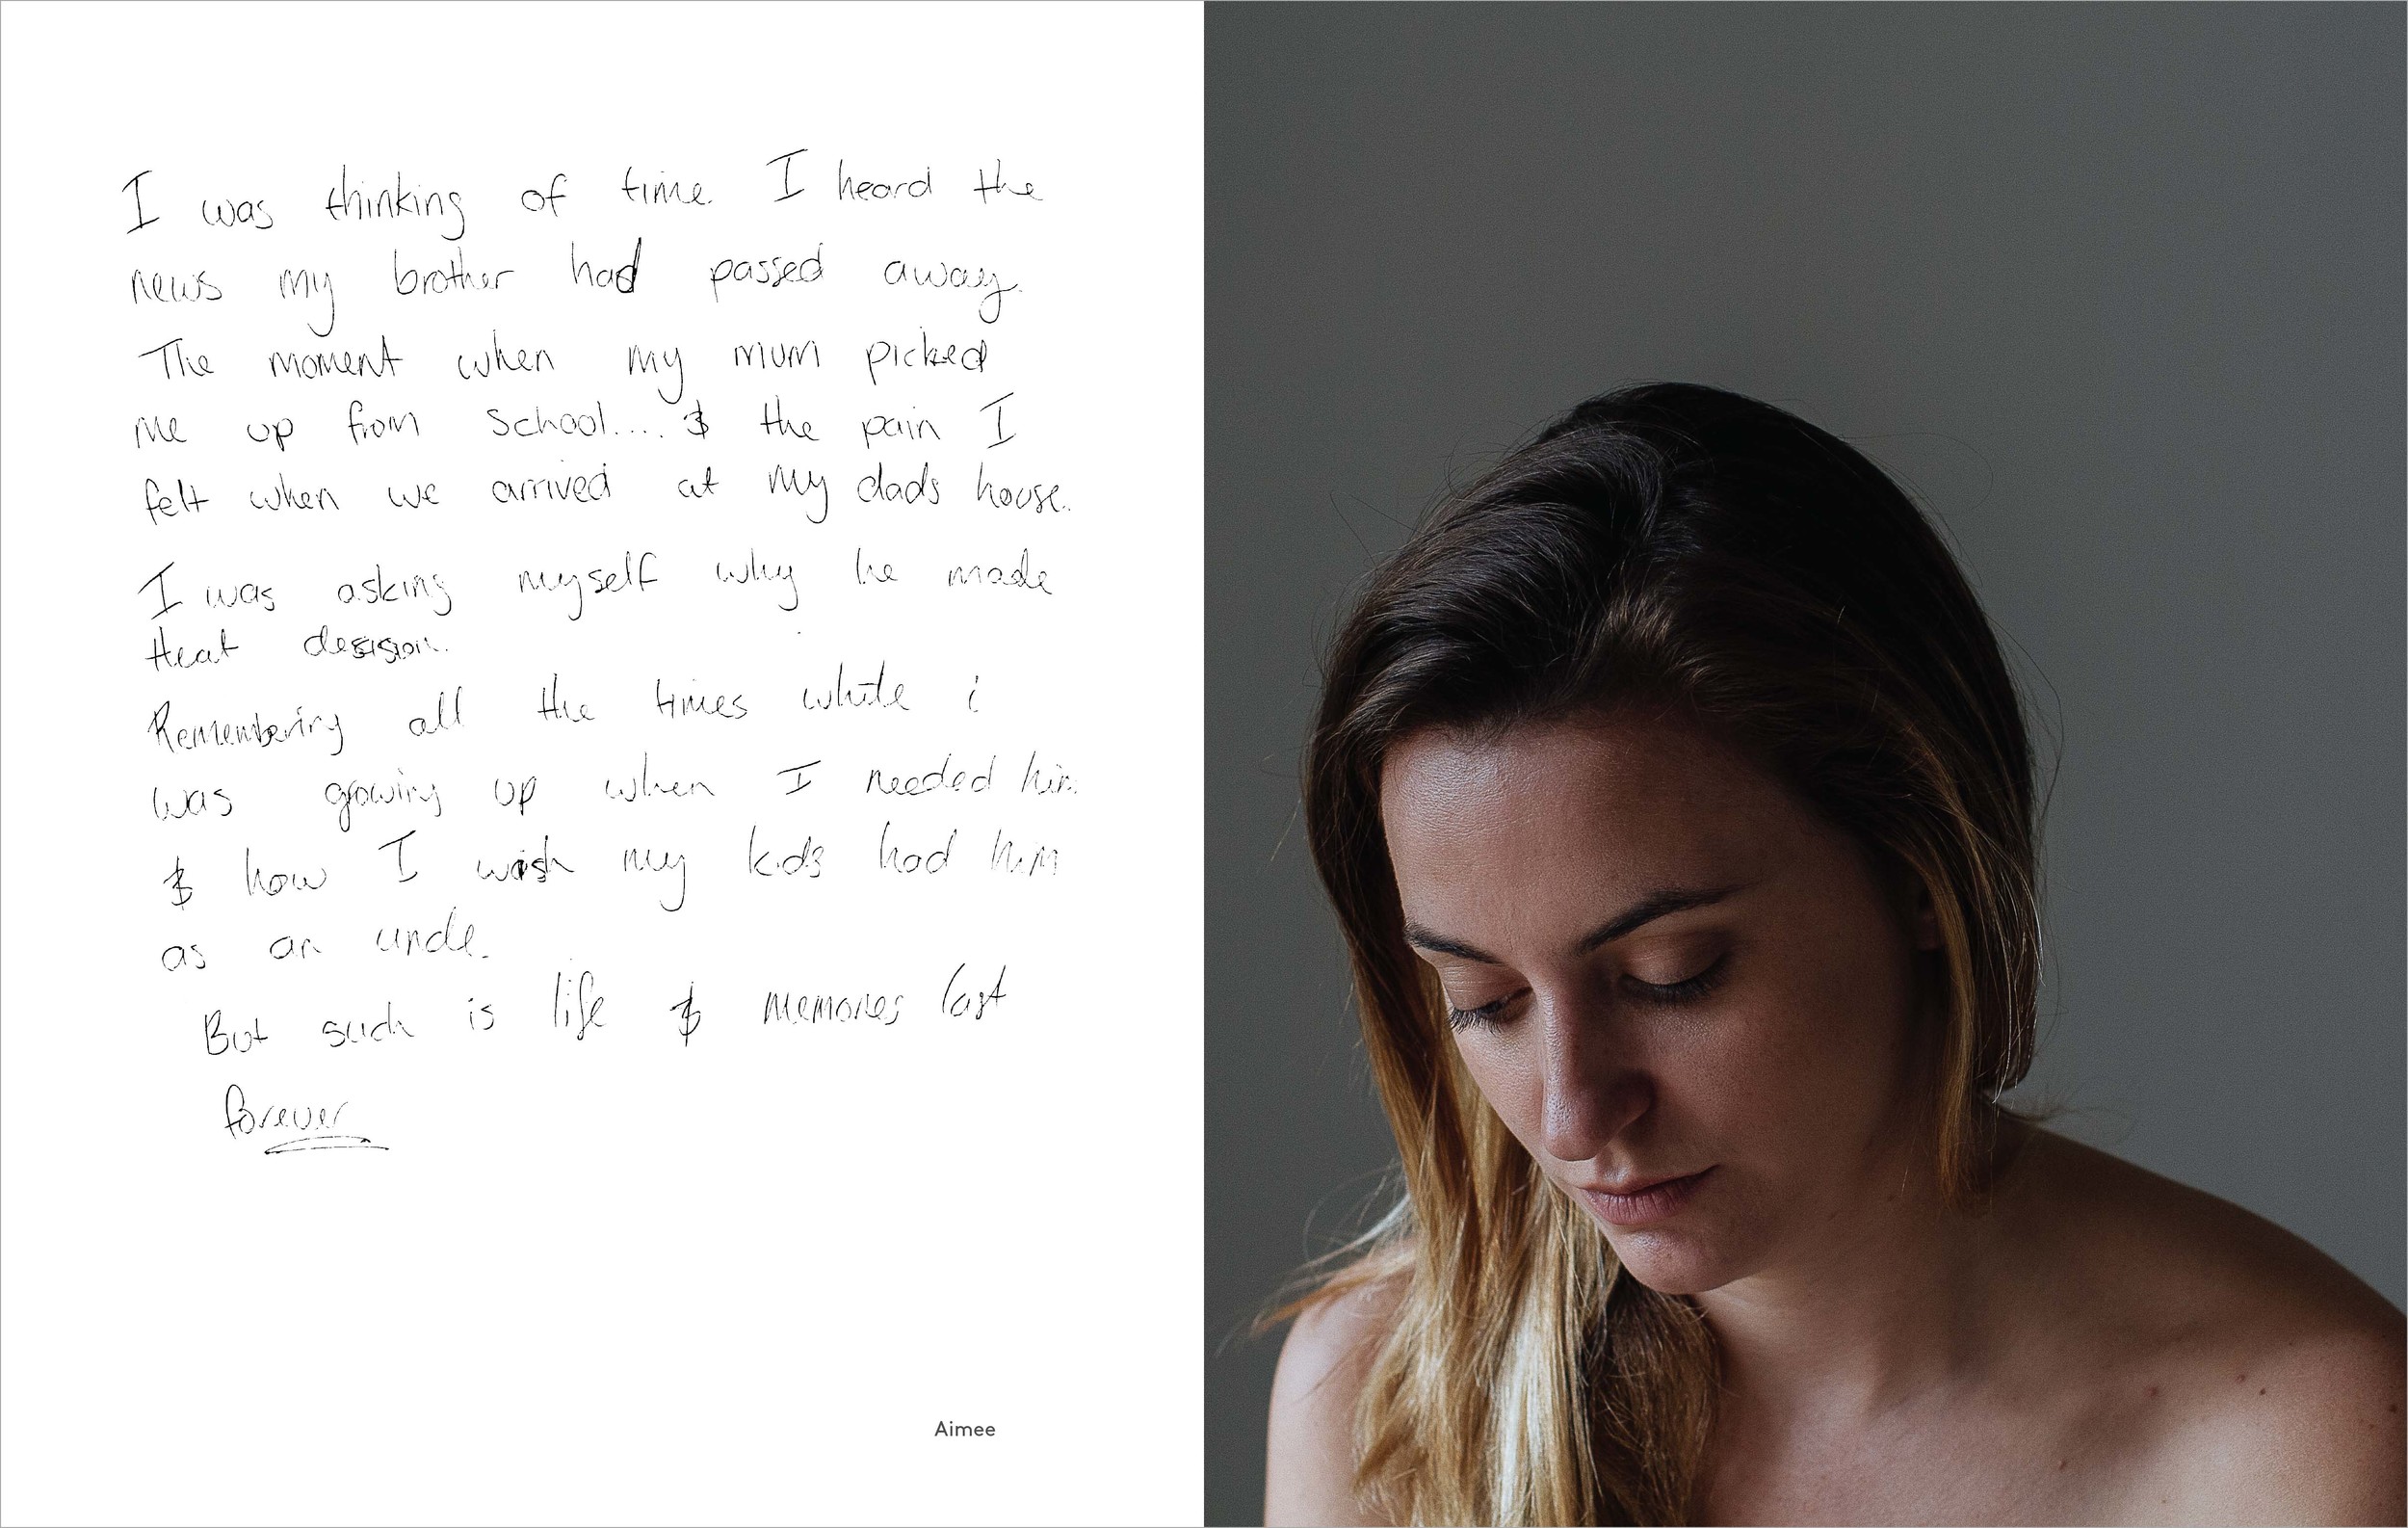 I was thinking of time. I heard the
news my brother had passed away.
The moment when my mum picked
me up from school.... & the pain I
felt when we arrived at my dads house.
I was asking myself why he made
that desision.
Remembering all the times while i
was growing up when I needed him
& how I wish my kids had him
as an uncle.
But such is life & memories last
forever
Aimee